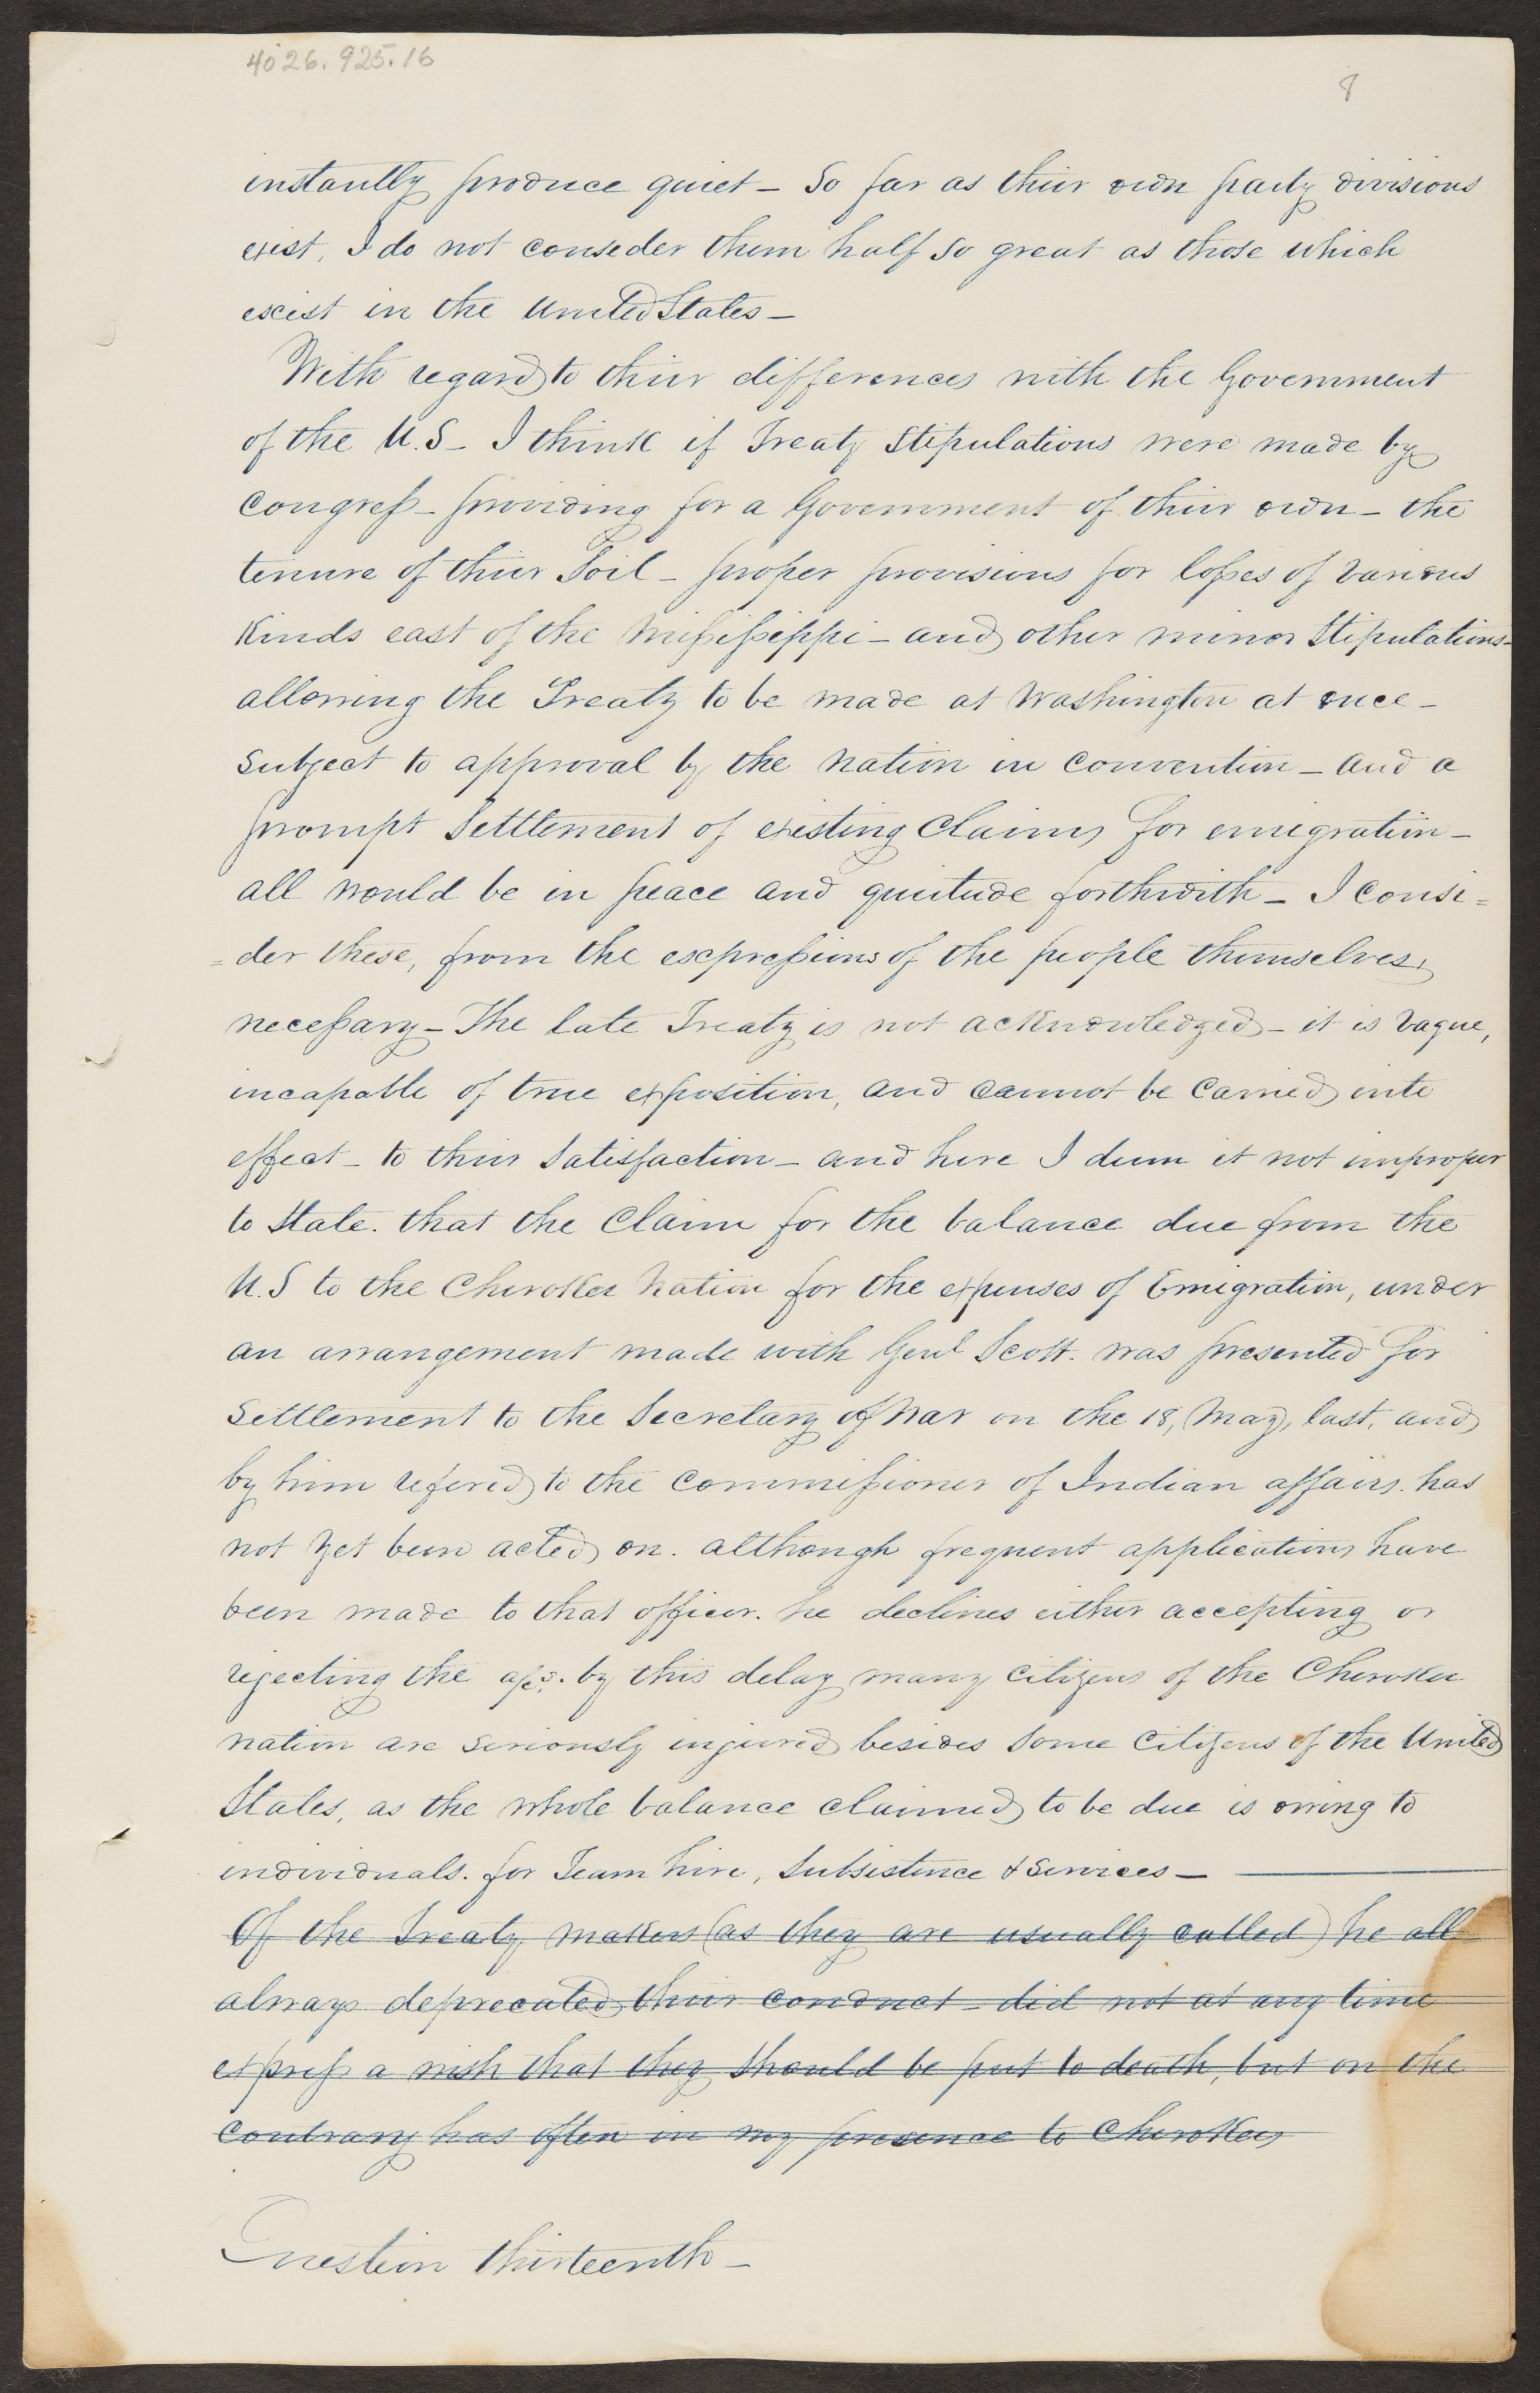 4026.925.16
8
instantly produce quiet - So far as their own party divisions
exist, I do not conseder them half so great as those which
exist in the United States -
With regard to their differences with the Government
of the U.S - I think if Treaty Stipulations were made by
Congress - providing for a Government of their own - the
tenure of their Soil - proper provisions for losses of various
Kinds east of the Missississippi - and other minor Stipulations -
allowing the Treaty to be made at Washington at once -
subject to approval by the Nation in Convention - and a
prompt Settlement of existing Claims for emigration -
all would be in peace and quietude forthwith - I Consi =
= der these, from the expressions of the people themselves,
necessary - The late Treaty is not acknowledged - it is vague,
incapable of true exposition, and cannot be Carried into
effect - to their Satisfaction - and here I deem it not improper
to State. that the Claim for the balance due from the
U.S to the Cherokee Nation for the expenses of Emigration, under
an arrangement made with Genl Scott. was presented for
Settlement to the Secretary of War on the 18, May, last, and
by him refered to the Commissioner of Indian affairs. has
not yet been acted on. although frequent applications have
been made to that officer. he declines either accepting or
rejecting the by this delay many Citizens of the Cherokee
nation are seriously injured besides some Citizens of the United
States, as the whole balance claimed to be due is owing to
individuals. for Team hire, Subsistence & Services -
Of the Treaty makers (as they are usually called) he all
always deprecated their conduct - did not at any time
express a wish that they should be put to death, but on the
contrary has often in my presence to Cherokees
Question thirteenth -